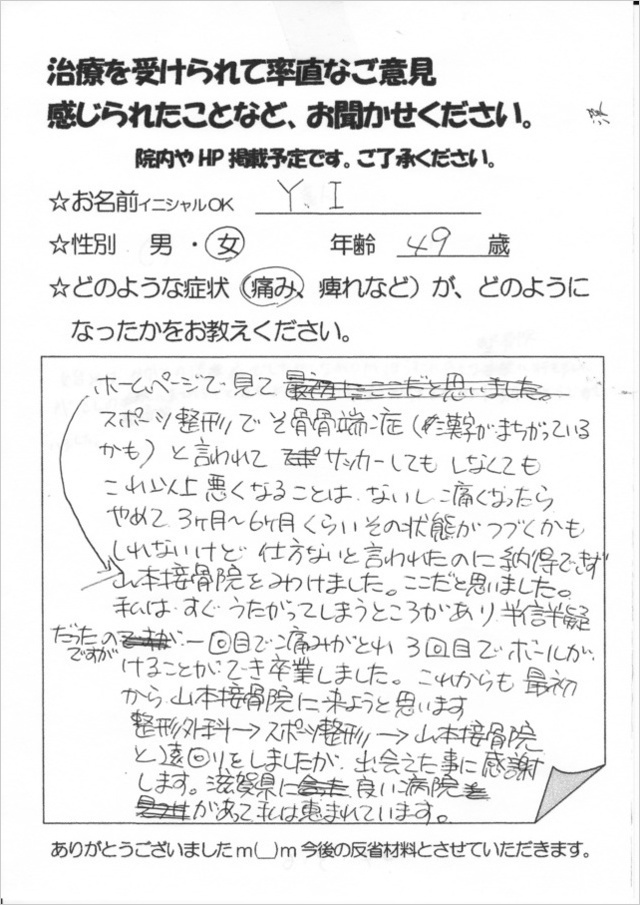 治療を受けられて率直なご意見
感じられたことなど、お聞かせください。
院内やHP掲載予定です。ご了承ください。
☆お名前イニシャルOK Y.I
☆性別 男・女 年齢 49 歳
☆どのような症状（痛み、痺れなど）が、どのように
なったかをお教えください。
ホームページで見て最初はここだと思いました。
スポーツ整形でそ骨骨端症（漢字がまちがっている
かも）と言われて サッカーしてもしなくても
これ以上悪くなることはないし痛くなったら
やめて3ヶ月〜6ヶ月くらいその状態がつづくかも
しれないけど仕方ないと言われたのに納得できず
山本接骨院をみつけました。ここだと思いました。
私はすぐうたがってしまうところがあり半信半疑
だったの
ですが 一回目で痛みがとれ3回目でボールが
けることができ卒業しました。これからも最初
から山本接骨院に来ようと思います
整形外科→スポーツ整形→山本接骨院
と遠回りをしましたが、出会えた事に感謝
します。滋賀県に良い病院
があって私は恵まれています。
ありがとうございましたm(__)m今後の反省材料とさせていただきます。